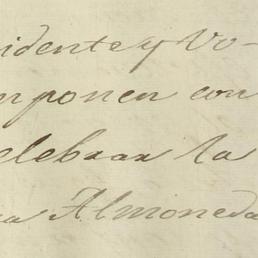 idente y Vo-
mponen con
elebrar la
a Almoneda